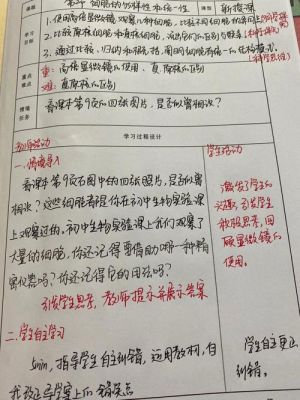 课题 第2节 细胞的多样性和统一性 课型 新授课
学习目标
1.使用高倍显微镜观察几种细胞,比较不同细胞的异同点(科学探究)
2.比较原核细胞和真核细胞,说出它们的区别与联系(科学思维)
3.通过比较、归纳和概括,阐明细胞具有统一性
(科学思维)
重点 重:高倍显微镜的使用、真、原核的区别
难点 难:真原核的区别
情境任务 看课本第9页的四张图片,是否似曾相识?
学习过程设计
教师活动 学生活动
一.情境导入
看课本第9页右图中的四张照片,是否似曾
相识?这些细胞都是你在初中生物实验课
上观察过的。初中生物实验课上我们观察了
大量的细胞,你还记得要借助哪一种精
密仪器吗?你还记得它的用法吗?
引发学生思考,教师提示并展示答案
激发了学生的
兴趣,引发学生
积极思考,回
顾显微镜的
使用。
二.学生自主学习
5min,指导学生自主纠错,运用教材,自
我改正导学案上的错误点
学生自主更正
纠错。